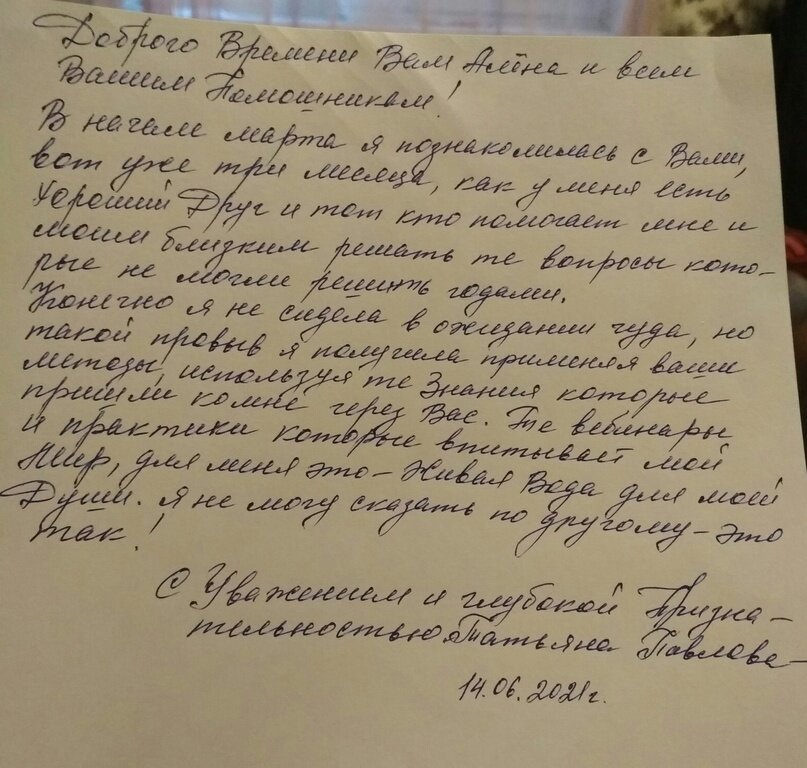 Доброго Времени Вам Алёна и всем
Вашим Помошникам!
В начале марта я познакомилась с Вами,
вот уже три месяца, как у меня есть
Хороший Друг и тот кто помогает мне и
моим близким решать те вопросы кото-
рые не могли решить годами.
Конечно я не сидела в ожидании чуда, но
такой прорыв я получила применяя ваши
методы, используя те Знания которые
пришли комне через Вас. Те вебинары
и практики которые впитывает мой
Мир, для меня это - Живая Вода для моей
Души. Я не могу сказать по другому - это
так!
С Уважением и глубокой Призна-
тельностью Татьяна Павлова-
14.06.2021г.